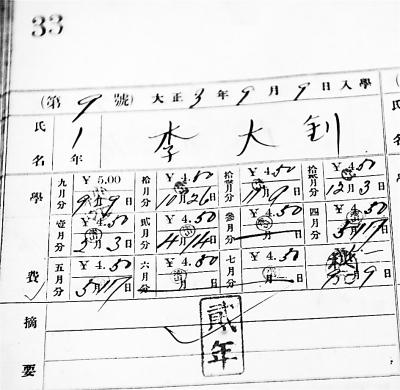 33
(第 9 號) 大正 3 年 9 月 9 日入學
氏名 1年 李大釗
學費
九月分 ¥ 5.00 9月9日
拾月分 ¥ 4.50 10月26日
拾壹月分 ¥ 4.50 11月9日
拾貳月分 ¥ 4.50 12月3日
壹月分 ¥ 4.50 3月3日
貳月分 ¥ 4.50 4月14日
參月分 ¥ 4.50 月 日
四月分 ¥ 4.50 5月17日
五月分 ¥ 4.50 5月17日
六月分 ¥ 4.50 月 日
七月分 ¥ 4.50 月 日
月9日
摘要
貳年